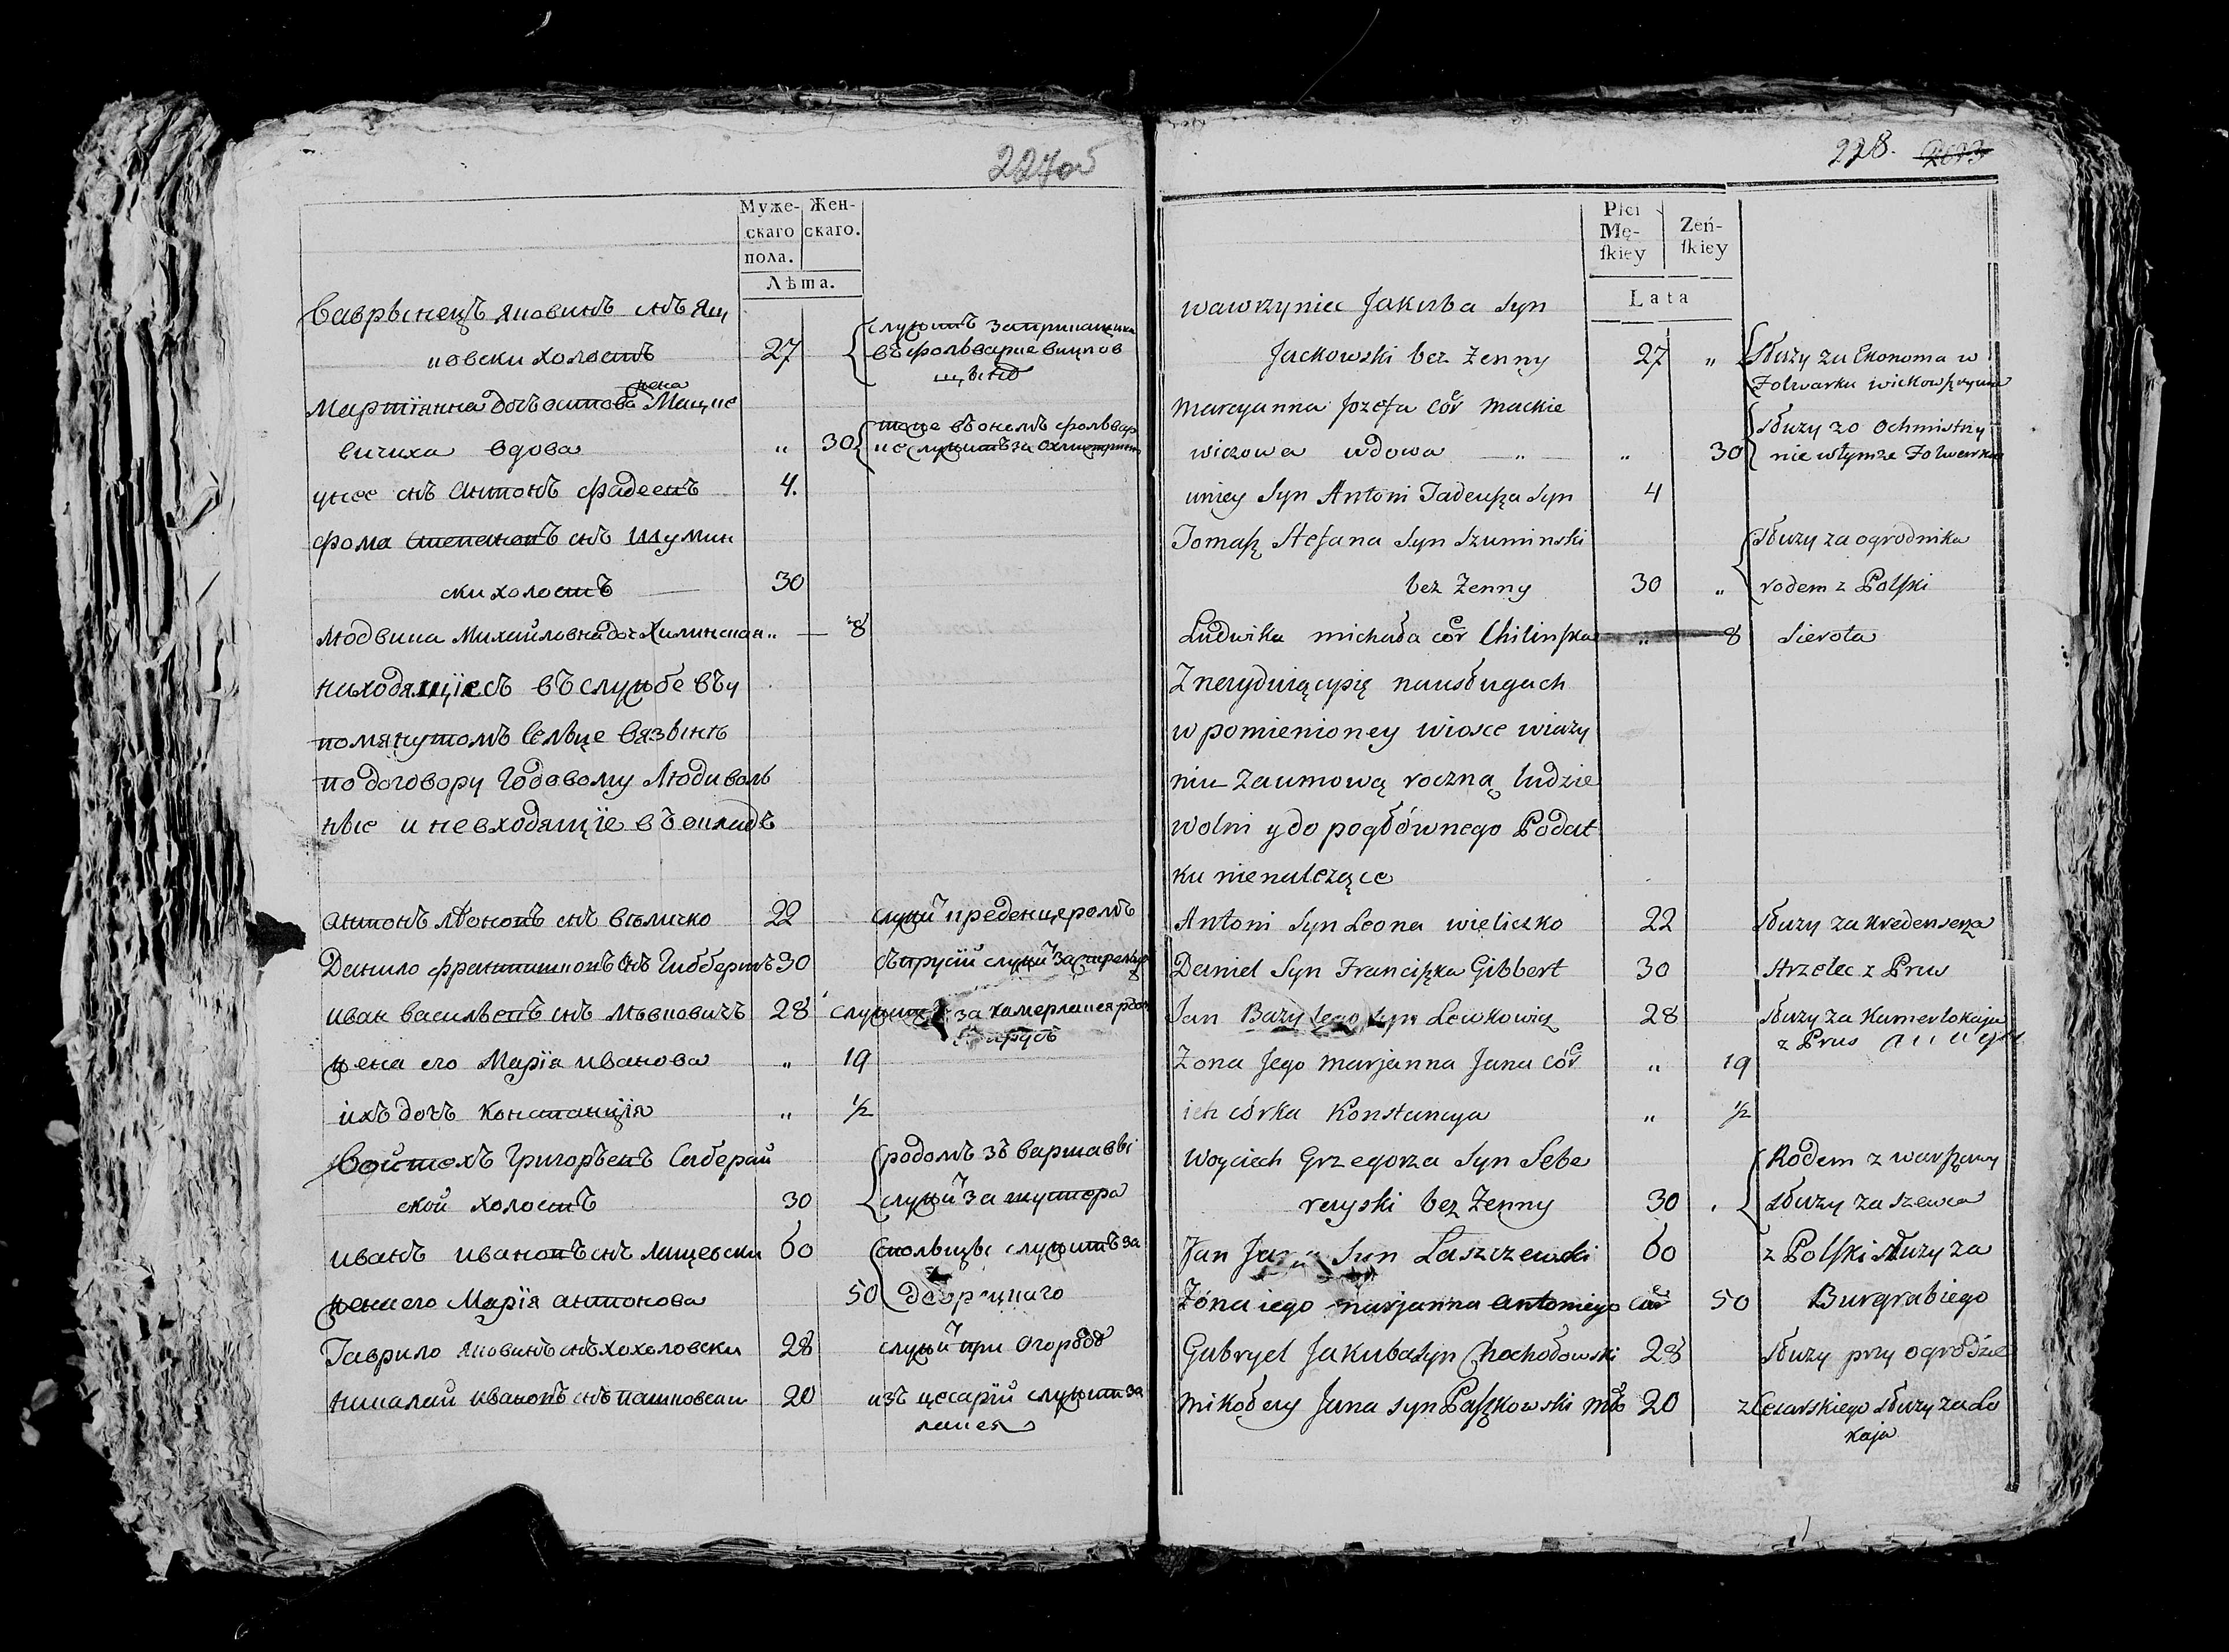 227об
Муже- Жен-
скаго скаго.
пола.
Лѣта.
Ваврынецъ яковинъ снъ Яц
ковски холостъ 27
служитъ за прикащика
въ фольварке вицков
щызнѣ
жена
Мартіанна дочъ осипова Мацке
вичиха вдова „ 30
тоже въ ономъ фольвар
ке служитъ за охмистрину
унее снъ Антонъ фадеевъ 4.
фома степановъ снъ Шумин
ски холостъ 30
людвика Михайловна доч Хилинская „ 8
находящіесъ въ службе въ у
помянутомъ селъце вязынѣ
по договору годовому люди воль
ные и не входящіе въ окладъ
антонъ лѣоновъ снъ вѣличко 22 служй креденцеромъ
Данило францишковъ снъ Гибберитъ 30 съ прусій служй за стрельца
иван василъевъ снъ лѣвковичъ 28 служит за камерлакея родом
с прусъ
жена его Марія иванова „ 19
ихъ дочъ констанція „ ½
Войтехъ Григоръевъ Себерий
ской холостъ 30
родомъ зъ варшавы
служй за шустера
иванъ ивановъ снъ лащевски 60
с полъщы служитъ за
жена его Марія антонова 50 дворецкаго
Гаврило яковинъ снъ хохоловски 28 служй при огородѣ
николай ивановъ снъ пашковски 20 изъ цесаріи служит за
лакея
228. 2013
Płci
Mę-
ſkiey Żeń-
ſkiey
Lata
wawrzyniec Jakuba Syn
Jackowski bez Żenny 27 „
Służy za Ekonoma w
Folwarku wickowszczyznie
Marcyanna Jozefa Cór Mackie
wiczowa wdowa „ „ 30
Służy zo Ochmistrzy
nie wtymze Folwarku
uniey Syn Antoni Tadeuſza Syn 4
Tomaſz Stefana Syn Szuminski
bez Żenny 30 „
Służy za ogrodnika
rodem z Polſki
Ludwika michała cór Chilinſka „ 8 Sierota
Znerydviącysię nausługach
w pomienioney wiosce wiazy
niu zaumową roczną ludzie
wolni y do pogłównego Podat
ku nienależące
Antoni Syn Leona wieliczko 22 Służy za Kredensera
Daniel Syn Franciſzka Gibbert 30 Strzelec z Prus
Jan Bazylego Syn Lewkowicz 28 Służy za Kamerlokaja
z Prus
Żona Jego marjanna Jana Cór „ 19
ich córka Konstancya „ ½
Woyciech Grzegorza Syn Sebe
reyski bez Żenny 30
Rodem z warſzawy
Służy za szewca
Jan Jana Syn Laszczewski 60 z Polſki służy za
Żóna iego marjanna Antoniego Cór 50 Burgrabiego
Gabryel Jakuba Syn Chochołowski 28 Służy przy ogrodzie
mikołay Jana syn Paſzkowski 20 z Cesarskiego służy za Lo
kaja